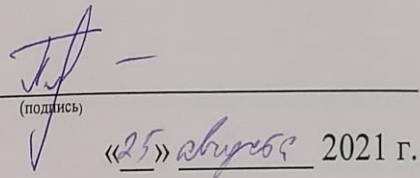 (подпись)
«25» августа 2021 г.